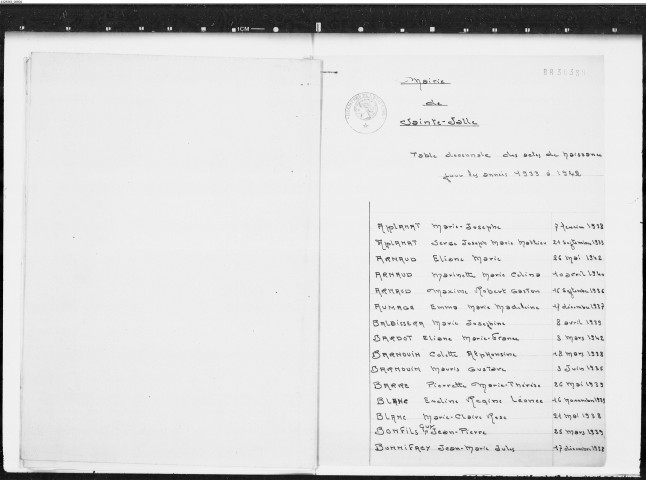 Mairie
de
Sainte-Jalle
Table decennale des actes de naissance
pour les années 1933 à 1942
Marie-Josephe 7 février 1938
Serge Joseph Marie Mathieu 21 Septembre
ARNAUD Eliane Marie 26 mai 1942
ARNAUD Marinette Marie Celina 10 avril 1940
ARNAUD Maxime Robert Gaston 15 Septembre 1936
AUMAGE Emma Marie Madeleine 17 décembre 1937
BALDISSERA Marie Josephine 8 avril 1939
BARDOT Eliane Marie-France 3 mars 1942
BARNOUIN Colette Alphonsine 18 mars 1938
BARNOUIN Mauris Gustave 3 Juin 1935
BARRE Pierrette Marie-Thérèse 26 mai 1939
BLANC Eveline Regine Léonce 16 novembre
BLANC Marie-Claire Rose 21 mai 1938
BONFILS Guy Jean-Pierre 25 mars 1939
BONNIFACY Jean-Marie Jules 17 décembre 1938